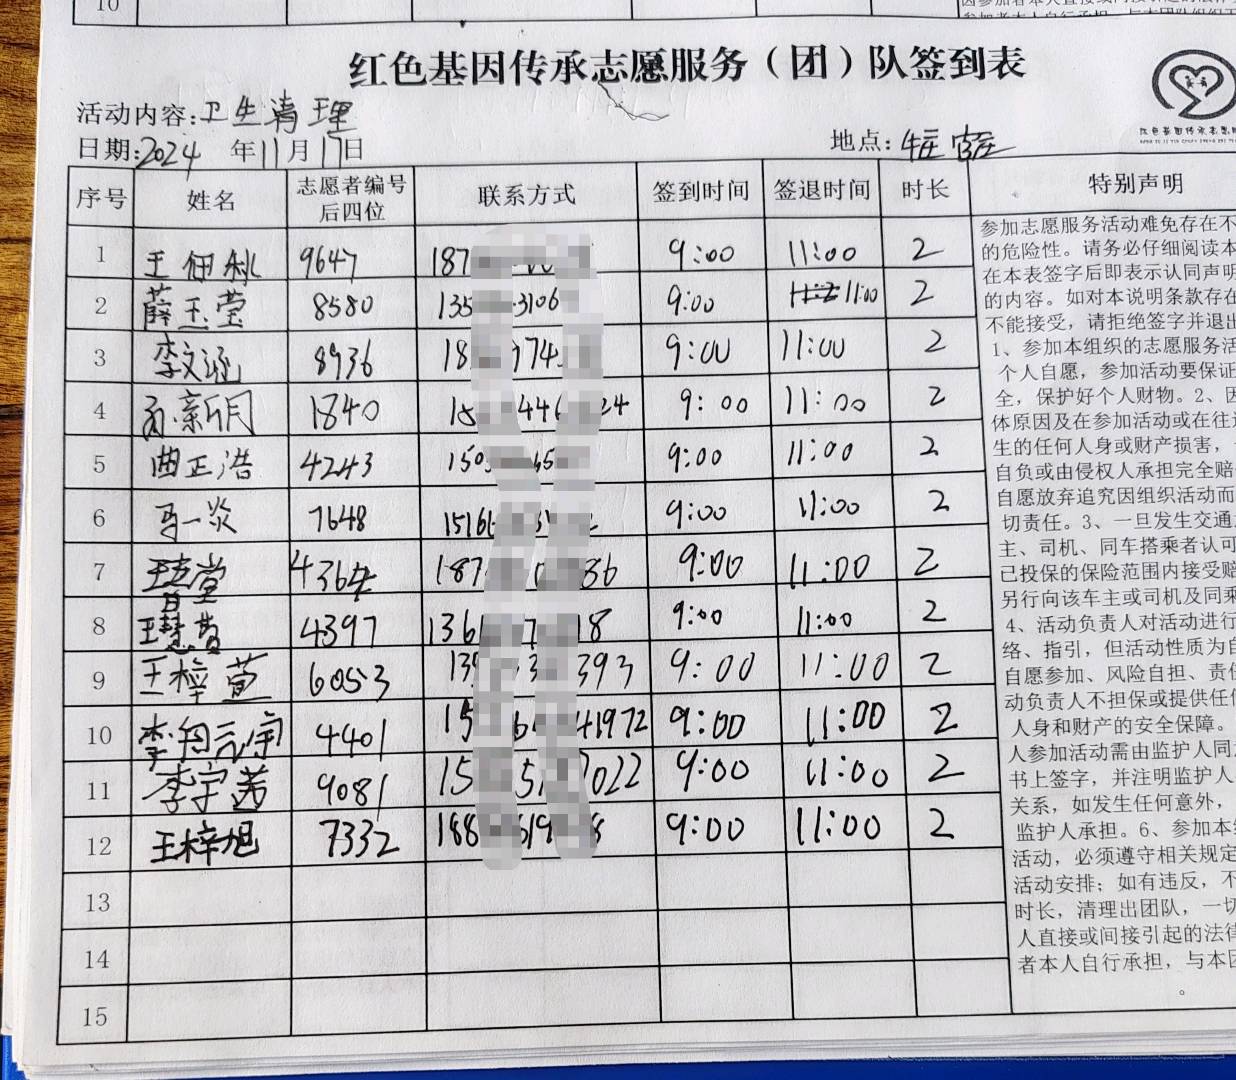 10
红色基因传承志愿服务（团）队签到表
活动内容:卫生清理
日期:2024 年11月17日 地点:
红色基因传承志愿
序号 姓名 志愿者编号后四位 联系方式 签到时间 签退时间 时长 特别声明
1 9647 187 9:00 11:00 2
2 薛玉莹 8580 135 3106 9:00 11:00 2
3 李文涵 8936 18 774 9:00 11:00 2
4 1840 15 446 24 9:00 11:00 2
5 曲正浩 4243 150 5 9:00 11:00 2
6 马一炎 7648 15166 9:00 11:00 2
7 4364 187 36 9:00 11:00 2
8 4397 136 7 8 9:00 11:00 2
9 王梓萱 6053 139 3 393 9:00 11:00 2
10 4401 15 6 41972 9:00 11:00 2
11 李宇茜 9081 15 5 7022 9:00 11:00 2
12 王梓旭 7332 188 619 8 9:00 11:00 2
13
14
15
参加志愿服务活动难免存在不
的危险性。请务必仔细阅读本
在本表签字后即表示认同声明
的内容。如对本说明条款存在
不能接受，请拒绝签字并退出
1、参加本组织的志愿服务活
个人自愿，参加活动要保证
全，保护好个人财物。2、因
体原因及在参加活动或在往返
生的任何人身或财产损害，
自负或由侵权人承担完全赔
自愿放弃追究因组织活动而
切责任。3、一旦发生交通
主、司机、同车搭乘者认可
已投保的保险范围内接受赔
另行向该车主或司机及同乘
4、活动负责人对活动进行
络、指引，但活动性质为自
自愿参加、风险自担、责任
动负责人不担保或提供任何
人身和财产的安全保障。
人参加活动需由监护人同
书上签字，并注明监护人
关系，如发生任何意外，
监护人承担。6、参加本
活动，必须遵守相关规定
活动安排；如有违反，不
时长，清理出团队，一切
人直接或间接引起的法律
者本人自行承担，与本团
。